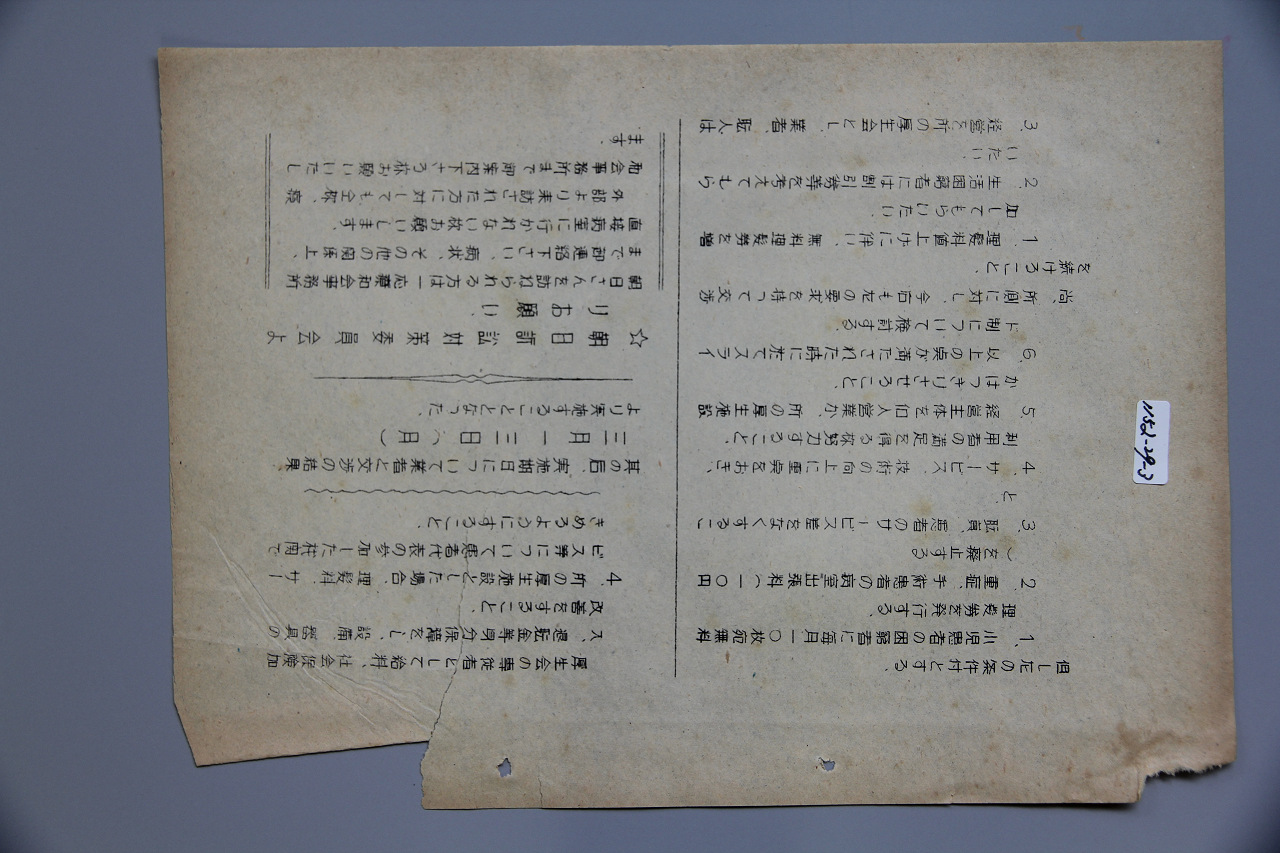 但し左の条件付とする。
1. 小児患者の困窮者に毎月一〇枚宛無料
理髪券を発行する。
2. 重症、手術患者の病室出張料(一〇円
)を廃止する
3. 職員、患者のサービス差をなくするこ
と。
4. サービス、技術の向上に重点をおき、
利用者の満足を得る様努力すること。
5. 経営主体を個人営業か、所の厚生施設
かはっきりさせること。
6. 以上の点が満たされた時に於てスライ
ド制について検討する。
尚、所側に対し、今后も左の要求を持って交渉
を続けること。
1. 理髪料値上げに伴い、無料理髪券を増
加してもらいたい
2. 生活困窮者には割引券等を考えてもら
いたい。
3. 経営を所の厚生会とし、業者、雇人は
厚生会の専従者として給料、社会保険加
入、退職金等身分保障をし、設備、器具の
改善をすること。
4. 所の厚生施設とした場合、理髪料、サー
ビス等について患者代表の参加した枠内で
きめるようにすること。
其の后、実施期日について業者と交渉の結果
三月一三日(月)
より実施することとなった。
☆ 朝日訴訟対策委員会よ
りお願い
朝日さんを訪ねられる方は一応療和会事務所
まで御連絡下さい、病状、その他の関係上、
直接病室に行かれない様お願いします。
外部より来訪された方に対しても全様、療
和会事務所まで御案内下さる様お願いいたし
ます。
1152-29-3